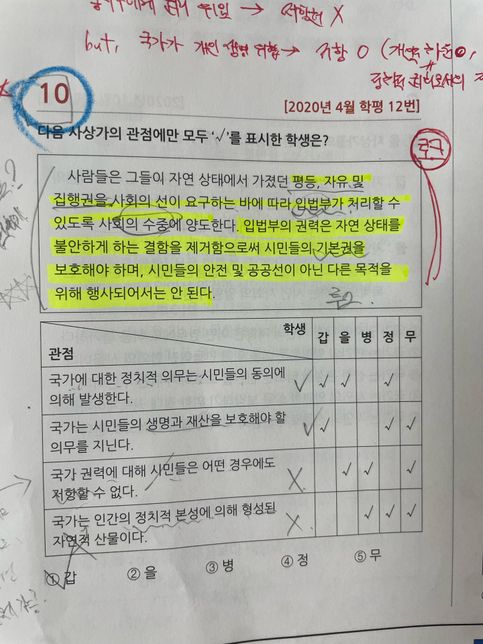 but, 국가가 개인 생명 위협 → 저항 O
10
[2020년 4월 학평 12번]
다음 사상가의 관점에만 모두 ‘√’를 표시한 학생은?
로크
사람들은 그들이 자연 상태에서 가졌던 평등, 자유 및
집행권을 사회의 선이 요구하는 바에 따라 입법부가 처리할 수
있도록 사회의 수중에 양도한다. 입법부의 권력은 자연 상태를
불안하게 하는 결함을 제거함으로써 시민들의 기본권을
보호해야 하며, 시민들의 안전 및 공공선이 아닌 다른 목적을
위해 행사되어서는 안 된다.
관점 학생 갑 을 병 정 무
국가에 대한 정치적 의무는 시민들의 동의에
의해 발생한다. √ √ √ √
국가는 시민들의 생명과 재산을 보호해야 할
의무를 지닌다. √ √ √ √
국가 권력에 대해 시민들은 어떤 경우에도
저항할 수 없다. X √ √ √
국가는 인간의 정치적 본성에 의해 형성된
자연적 산물이다. X √ √ √
① 갑 ② 을 ③ 병 ④ 정 ⑤ 무